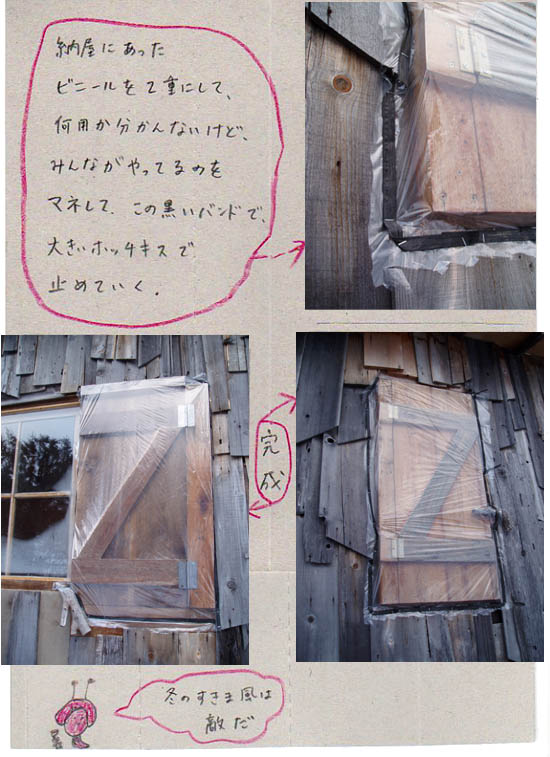 納屋にあった
ビニールを2重にして、
何用か分かんないけど、
みんながやってるのを
マネして、この黒いバンドで、
大きいホッチキスで
止めていく。
完成
冬のすきま風は
敵だ